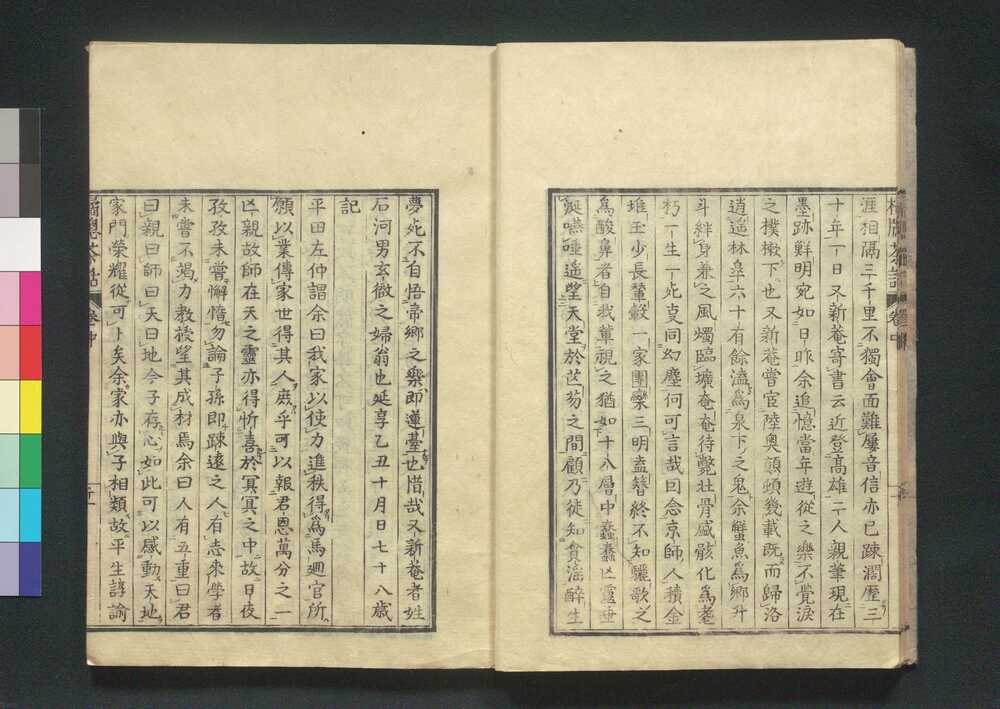 涯相隔三千里不獨會面難屢音信亦已踈濶歷三
十年一日又新菴寄書云近登高雄二人親筆現在
墨跡鮮明宛如日昨余追憶當年遊從之樂不覺淚
之撲樕下也又新菴嘗宦陸奥頗頓幾載既而歸洛
逍遥林皐六十有餘溘為泉下之鬼余蟹魚為鄉升
斗絆身兼之風燭臨壙奄奄待斃壮骨感骸化為耄
朽一生一死支同幻塵何可言哉因念京師人積金
堆玉少長輦轂一家團欒三明盍簪終不知驪歌之
為酸鼻者自我軰視之猶如十八層中蠢蠢亡靈垂
涎嚥唾遥望天堂於苾芴之間顧乃徒知貪滛醉生
夢死不自悟帝鄉之樂即蓮䑓也惜哉又新菴者姓
石河男玄微之婦翁也延享乙丑十月日七十八歳
記
平田左仲謂余曰我家以使力進秩得為馬廻官所
願以業傳家世得其人庻乎可以報君恩萬分之一
亡親故師在天之靈亦得忻喜於冥冥之中故日夜
孜孜未嘗懈惰勿論子孫即踈遠之人有志來學者
未嘗不竭力教授望其成材焉余曰人有五重曰君
曰親曰師曰天曰地今子存心如此可以感動天地
家門榮耀從可卜矣余家亦與子相類故平生諄諭
窻茶話
卷中